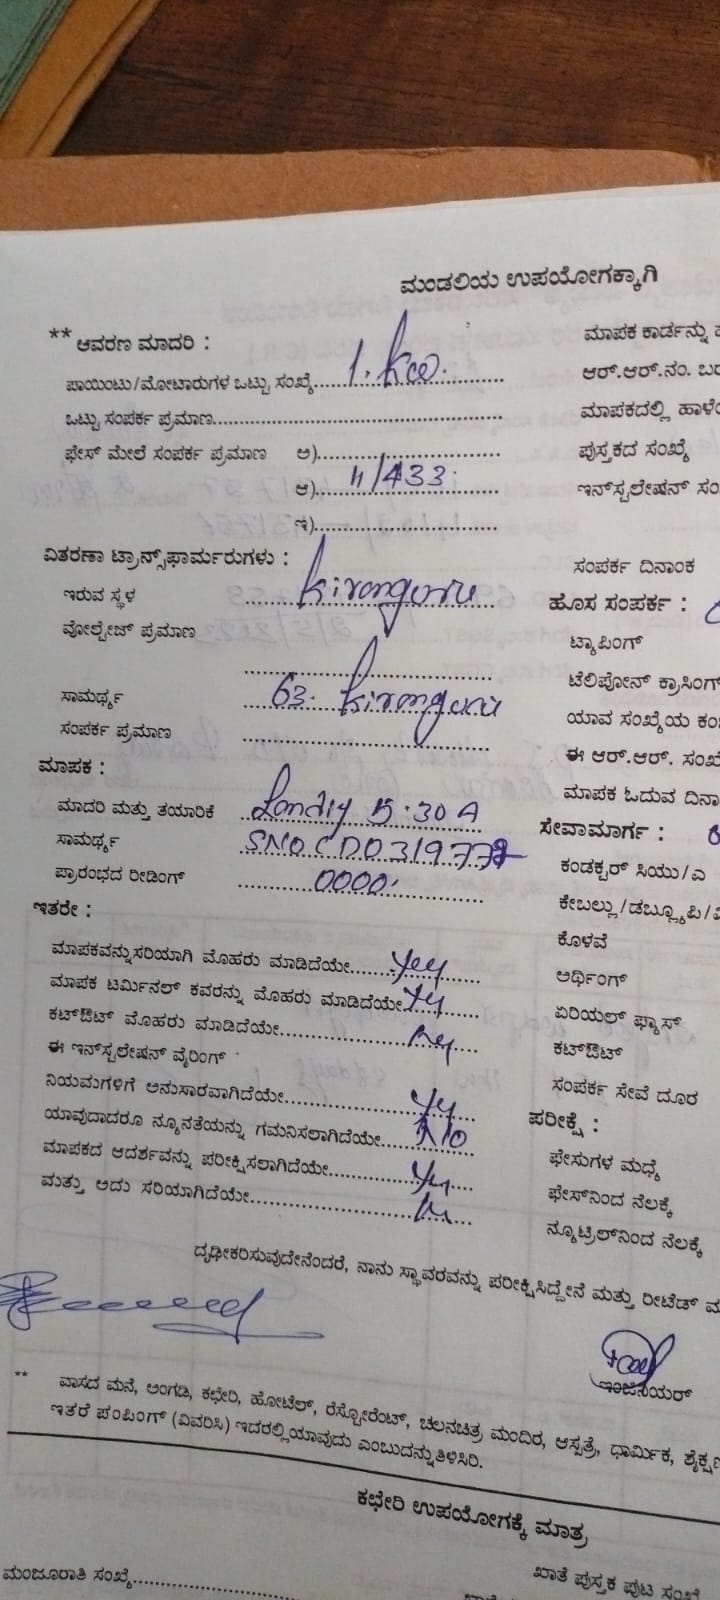 ಮಂಡಲಿಯ ಉಪಯೋಗಕ್ಕಾಗಿ
** ಆವರಣ ಮಾದರಿ :
ಪಾಯಿಂಟು/ಮೋಟಾರುಗಳ ಒಟ್ಟು ಸಂಖ್ಯೆ 1. kw.
ಒಟ್ಟು ಸಂಪರ್ಕ ಪ್ರಮಾಣ
ಫೇಸ್ ಮೇಲೆ ಸಂಪರ್ಕ ಪ್ರಮಾಣ ಅ)
ಆ) 11/433
ಇ)
ವಿತರಣಾ ಟ್ರಾನ್ಸ್‌ಫಾರ್ಮರುಗಳು :
ಇರುವ ಸ್ಥಳ Kiranguru
ವೋಲ್ಟೇಜ್ ಪ್ರಮಾಣ
ಸಾಮರ್ಥ್ಯ 63. Kiranguru
ಸಂಪರ್ಕ ಪ್ರಮಾಣ
ಮಾಪಕ :
ಮಾದರಿ ಮತ್ತು ತಯಾರಿಕೆ 5.30 A
ಸಾಮರ್ಥ್ಯ
ಪ್ರಾರಂಭದ ರೀಡಿಂಗ್ 0000
ಇತರೇ :
ಮಾಪಕವನ್ನು ಸರಿಯಾಗಿ ಮೊಹರು ಮಾಡಿದೆಯೇ yes
ಮಾಪಕ ಟರ್ಮಿನಲ್ ಕವರನ್ನು ಮೊಹರು ಮಾಡಿದೆಯೇ
ಕಟ್‌ಔಟ್ ಮೊಹರು ಮಾಡಿದೆಯೇ
ಈ ಇನ್‌ಸ್ಟಲೇಷನ್ ವೈರಿಂಗ್
ನಿಯಮಗಳಿಗೆ ಅನುಸಾರವಾಗಿದೆಯೇ
ಯಾವುದಾದರೂ ನ್ಯೂನತೆಯನ್ನು ಗಮನಿಸಲಾಗಿದೆಯೇ No
ಮಾಪಕದ ಆದರ್ಶವನ್ನು ಪರೀಕ್ಷಿಸಲಾಗಿದೆಯೇ
ಮತ್ತು ಅದು ಸರಿಯಾಗಿದೆಯೇ
ಮಾಪಕ ಕಾರ್ಡನ್ನು
ಆರ್.ಆರ್.ನಂ. ಬರ
ಮಾಪಕದಲ್ಲಿ ಹಾಳೆ
ಪುಸ್ತಕದ ಸಂಖ್ಯೆ
ಇನ್‌ಸ್ಟಲೇಷನ್ ಸಂ
ಸಂಪರ್ಕ ದಿನಾಂಕ
ಹೊಸ ಸಂಪರ್ಕ :
ಟ್ಯಾಪಿಂಗ್
ಟೆಲಿಫೋನ್ ಕ್ರಾಸಿಂಗ್
ಯಾವ ಸಂಖ್ಯೆಯ ಕಂ
ಈ ಆರ್.ಆರ್. ಸಂಖ
ಮಾಪಕ ಓದುವ ದಿನಾ
ಸೇವಾಮಾರ್ಗ :
ಕಂಡಕ್ಟರ್ ಸಿಯು/ಎ
ಕೇಬಲ್ಲು/ಡಬ್ಲ್ಯೂಪಿ/ವಿ
ಕೊಳವೆ
ಅರ್ಥಿಂಗ್
ಏರಿಯಲ್ ಫ್ಯೂಸ್
ಕಟ್‌ಔಟ್
ಸಂಪರ್ಕ ಸೇವೆ ದೂರ
ಪರೀಕ್ಷೆ :
ಫೇಸುಗಳ ಮಧ್ಯೆ
ಫೇಸ್‌ನಿಂದ ನೆಲಕ್ಕೆ
ನ್ಯೂಟ್ರಲ್‌ನಿಂದ ನೆಲಕ್ಕೆ
ದೃಢೀಕರಿಸುವುದೇನೆಂದರೆ, ನಾನು ಸ್ಥಾವರವನ್ನು ಪರೀಕ್ಷಿಸಿದ್ದೇನೆ ಮತ್ತು ರೀಟೆಡ್
ಇಂಜಿನಿಯರ್
** ವಾಸದ ಮನೆ, ಅಂಗಡಿ, ಕಛೇರಿ, ಹೋಟೆಲ್, ರೆಸ್ಟೋರೆಂಟ್, ಚಲನಚಿತ್ರ ಮಂದಿರ, ಆಸ್ಪತ್ರೆ, ಧಾರ್ಮಿಕ, ಶೈಕ್ಷಣ
ಇತರೆ ಪಂಪಿಂಗ್ (ವಿವರಿಸಿ) ಇದರಲ್ಲಿಯಾವುದು ಎಂಬುದನ್ನುತಿಳಿಸಿರಿ.
ಕಛೇರಿ ಉಪಯೋಗಕ್ಕೆ ಮಾತ್ರ
ಮಂಜೂರಾತಿ ಸಂಖ್ಯೆ
ಖಾತೆ ಪುಸ್ತಕ ಪುಟ ಸಂಖ್ಯೆ